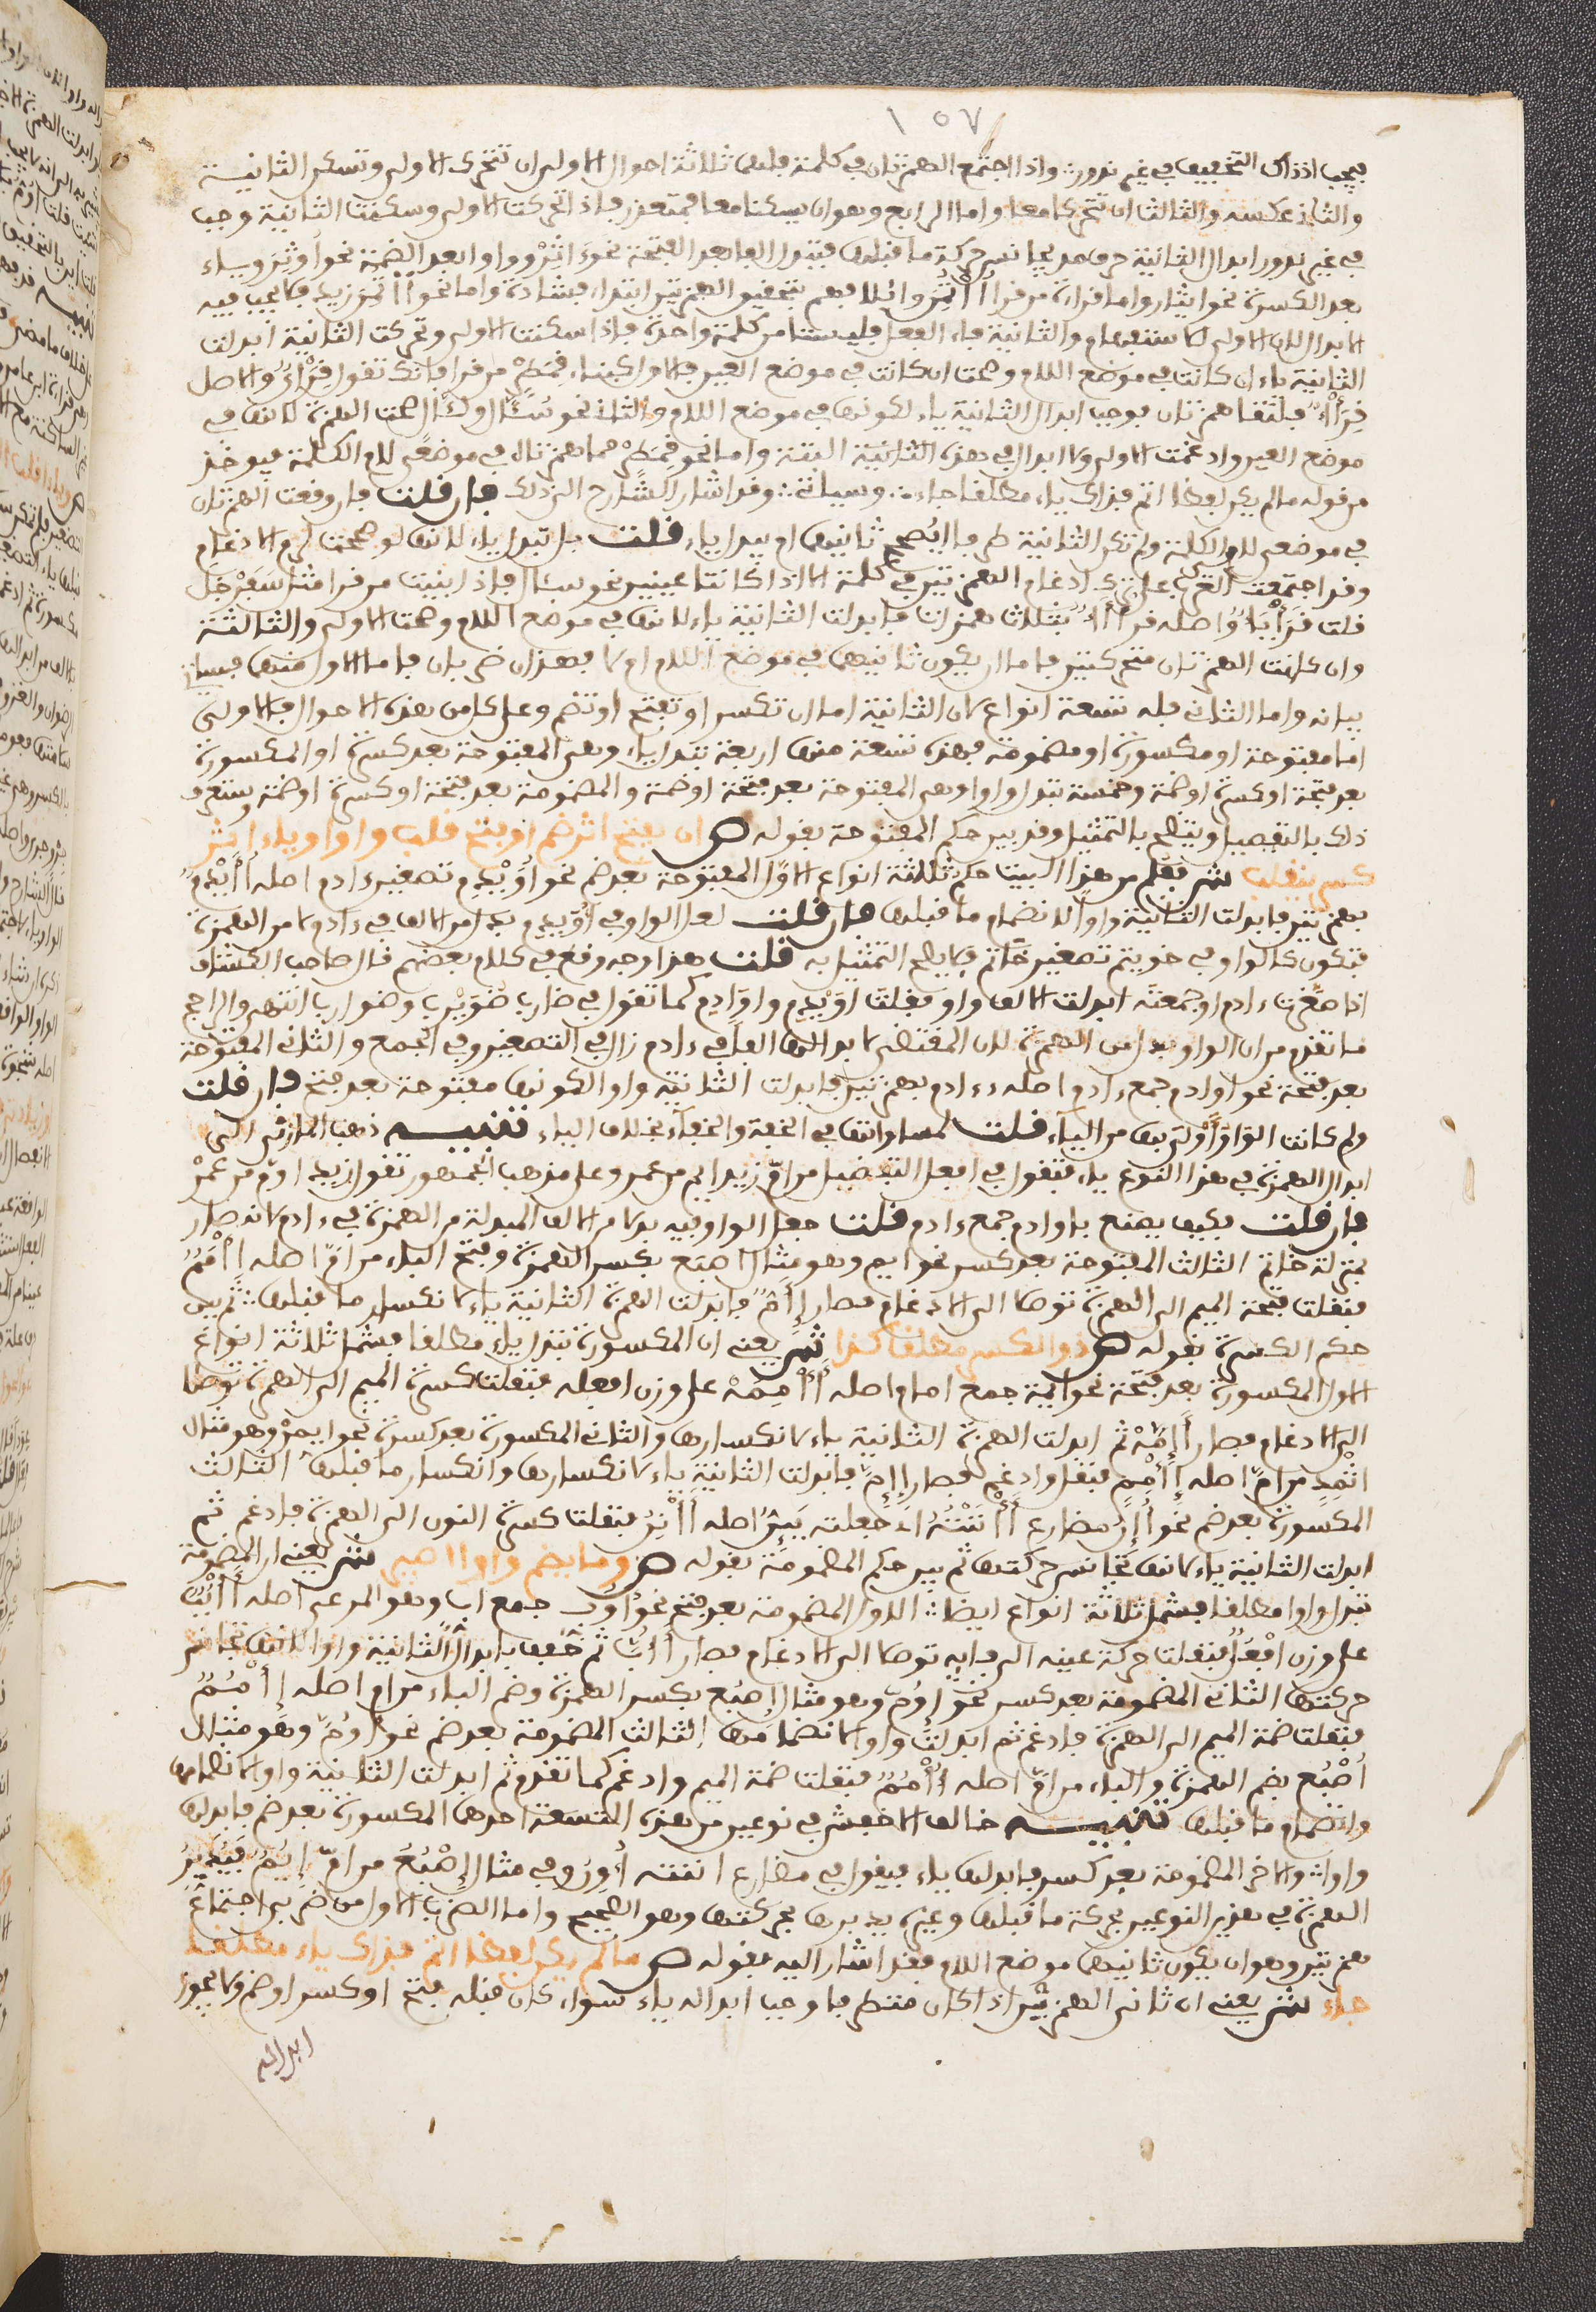 ١٥٧
فيجب اذذاك التخفيف في غير ندور واذا اجتمع الهمزتان في كلمة فلهما ثلاثة احوال الاول ان تتحرك الاولى وتسكن الثانية
والثاني عكسه والثالث ان تتحركا معا واما الرابع وهو ان يسكنا معا فمتعذر فاذا تحركت الاولى وسكنت الثانية وجب
في غير ندور ابدال الثانية حرف مد يجانس حركة ما قبلها فتبدل الفا بعد الفتحة نحو ءاثر وواوا بعد الضمة نحو أوثر وياء
بعد الكسرة نحو ايثار واما قراءة من قرأ ائلافهم بتحقيق الهمزتين ابتداء فشاذة واما نحو أأتمن زيد فلا يجب فيه
الابدال لان الاولى للاستفهام والثانية فاء الفعل فليستا من كلمة واحدة فاذا سكنت الاولى وتحركت الثانية ابدلت
الثانية ياء ان كانت في موضع اللام وصحت ان كانت في موضع العين فالاول كبناء قمطر من قرأ فانك تقول قرأي والاصل
قرأأ فالتقا همزتان فوجب ابدال الثانية ياء لكونها في موضع اللام والثاني نحو سئال او لئال صحت الهمزة لانها في
موضع العين وادغمت الاولى ولا ابدال في هذه الثانية البتة واما نحو قمطر فهما همزتان في موضع لام الكلمة فيوخذ
من قوله ما لم يكن لفظا اتم فذاك ياء مطلقا جاء وسياتي وقد اشار الشارح الى ذلك فان قلت فان وقعت الهمزتان
في موضعي لام الكلمة ولم تكن الثانية طرفا ايصح ثانيها او يبدل ياء قلت بل تبدل ياء لانها لو صحت لزم الادغام
وقد اجتمعت العرب على ترك ادغام الهمزتين في كلمة الا اذا كانتا عينين نحو سئال فاذا بنيت من قرا مثل سفرجل
قلت قرأيأ واصله قرأأأ بثلاث همزات فابدلت الثانية ياء لانها في موضع اللام وصحت الاولى والثالثة
وان كانت الهمزتان متحركتين فاما ان يكون ثانيهما في موضع اللام او لا فهذان ضربان فاما الاول منهما فسياتي
بيانه واما الثاني فله تسعة انواع لان الثانية اما ان تكسر او تفتح او تضم وعلى كل من هذه الاحوال فالاولى
اما مفتوحة او مكسورة او مضمومة فهذه تسعة منها اربعة تبدل ياء وهي المفتوحة بعد كسرة او المكسورة
بعد فتحة او كسرة او ضمة وخمسة تبدل واوا وهي المفتوحة بعد فتحة او ضمة والمضمومة بعد فتحة او كسرة او ضمة وستعرف
ذلك بالتفصيل ويتضح بالتمثيل وقد بين حكم المفتوحة بقوله ص ان يفتح اثر ضم او فتح قلب واوا وياء اثر
كسر ينقلب ش فعلم من هذا البيت حكم ثلاثة انواع الاول المفتوحة بعد ضم نحو أويدم تصغير ءادم اصله أأيدم
بهمزتين فابدلت الثانية واوا لانضمام ما قبلها فان قلت لعل الواو في أويدم بدل من الالف في ءادم لا من الهمزة
فتكون كالواو في خويتم تصغير خاتم فلا يصح التمثيل به قلت هذا وجه وقع في كلام بعضهم قال صاحب الكشاف
اذا صغرت ءادم او جمعته ابدلت الالف واوا فقلت أويدم واوادم كما تقول في ضارب ضويرب وضوارب انتهى والراجح
ما تقدم من ان الواو بدل من الهمزة لان المقتضي لابدالها الفا في ءادم زال في التصغير وفي الجمع والثاني المفتوحة
بعد فتحة نحو اوادم جمع ءادم اصله ءءادم بهمزتين فابدلت الثانية واوا لكونها مفتوحة بعد فتح فان قلت
ولم كانت الواو أولى بها من الياء قلت لمساواتها في الخفة والخفاء بخلاف الياء تنبيه ذهب المازني الى
ابدال الهمزة في هذا النوع ياء فتقول في افعل التفضيل من ام زيد ايم من عمرو وعلى مذهب الجمهور تقول زيد اوم من عمرو
فان قلت فكيف يصنع باوادم جمع ءادم قلت جعل الواو فيه بدلا من الالف المبدلة من الهمزة في ءادم لانه صار
بمنزلة خاتم الثالث المفتوحة بعد كسر نحو ايم وهو مثال اصبع بكسر الهمزة وفتح الباء من ام اصله إأمم
فنقلت فتحة الميم الى الهمزة توصلا الى الادغام فصار إأم فابدلت الهمزة الثانية ياء لانكسار ما قبلها ثم بين
حكم المكسورة بقوله ص ذو الكسر مطلقا كذا ش يعني ان المكسورة تبدل ياء مطلقا فشمل ثلاثة انواع
الاول المكسورة بعد فتحة نحو ايمة جمع امام واصله أأممة على وزن افعلة فنقلت كسرة الميم الى الهمزة توصلا
الى الادغام فصار أإمة ثم ابدلت الهمزة الثانية ياء لانكسارها والثاني المكسورة بعد كسرة نحو ايم وهو مثال
اثمد من ام اصله إأمم فنقل وادغم فصار إإم فابدلت الثانية ياء لانكسارها وانكسار ما قبلها الثالث
المكسورة بعد ضم نحو أإن مضارع أأننته اي جعلته يئن اصله أأنن فنقلت كسرة النون الى الهمزة فادغم ثم
ابدلت الثانية ياء لانها تجانس حركتها ثم بين حكم المضمومة بقوله ص وما يضم واوا اصر ش يعني ان المضمومة
تبدل واوا مطلقا فشمل ثلاثة انواع ايضا الاول المضمومة بعد فتح نحو أوب جمع اب وهو المرعى اصله أأبب
على وزن افعل فنقلت حركة عينه الى فايه توصلا الى الادغام فصار أأب ثم خفف بابدال الثانية واوا لانها تجانس
حركتها الثاني المضمومة بعد كسر نحو إوم وهو مثال إصبع بكسر الهمزة وضم الباء من ام اصله إأمم
فنقلت ضمة الميم الى الهمزة فادغم ثم ابدلت واوا لانضمامها الثالث المضمومة بعد ضم نحو أوم وهو مثال
أصبع بضم الهمزة والباء من ام اصله أأمم فنقلت ضمة الميم وادغم كما تقدم ثم ابدلت الثانية واوا لانضمامها
وانضمام ما قبلها تنبيه خالف الاخفش في نوعين من هذه التسعة احدهما المكسورة بعد ضم فابدلها
واوا والاخر المضمومة بعد كسر فابدلها ياء فيقول في مضارع اننته أون وفي مثال إصبع من ام إيم فيدبر
الهمزة في هذين النوعين بحركة ما قبلها وغيره يدبرها بحركتها وهو الصحيح واما الضرب الاول من ضربي اجتماع
همزتين وهو ان يكون ثانيهما موضع اللام فقد اشار اليه بقوله ص ما لم يكن لفظا اتم فذاك ياء مطلقا
جاء ش يعني ان ثاني الهمزتين اذا كان متطرفا وجب ابداله ياء سواء كان قبله فتح او كسر او ضم ولا يجوز
ابداله